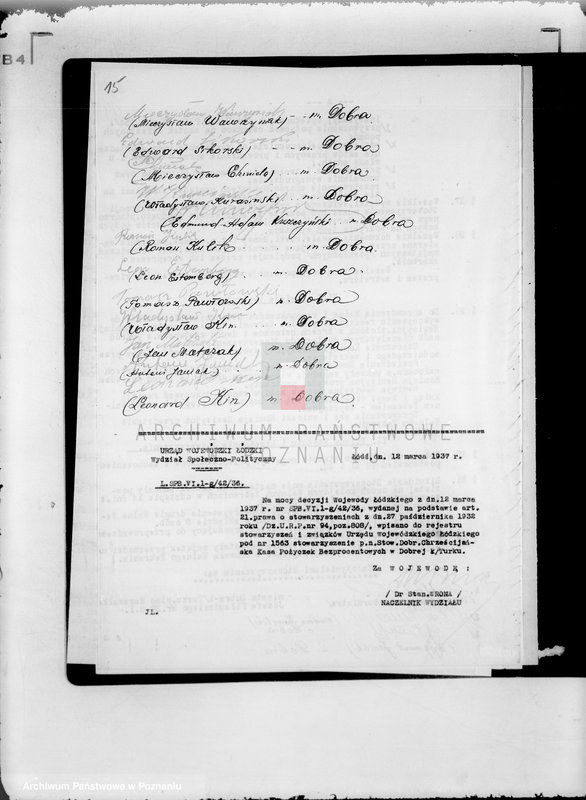 B4
15
(Mieczysław Wawrzyniak) - m. Dobra
(Edward Sikorski) - m. Dobra
(Mieczysław Chmielo) m. Dobra
(Władysław Kurasiński m. Dobra
(Edmund Adam Kuczyński m Dobra
(Roman Kulik m Dobra.
(Leon Estemberg) m. Dobra.
(Tomasz Pawłowski) m. Dobra
(Władysław Kin. m. Dobra
Jan Matczak
(Jan Matczak) m. Dobra
(Antoni Janiak) m Dobra
Leonard Kin
(Leonard Kin) m Dobra.
ARCHIWUM PAŃSTWOWE
POZNANIU
URZĄD WOJEWÓDZKI ŁÓDZKI
Wydział Społeczno-Polityczny
Łódź,dn. 12 marca 1937 r.
L.SPB.VI.1-g/42/36.
Na mocy decyzji Wojewody Łódzkiego z dn.12 marca
1937 r. nr SPB.VI.1-g/42/36, wydanej na podstawie art.
21.prawa o stowarzyszeniach z dn.27 października 1932
roku /Dz.U.R.P.nr 94,poz.808/, wpisano do rejestru
stowarzyszeń i związków Urzędu Wojewódzkiego Łódzkiego
pod nr 1563 stowarzyszenie p.n.Stow.Dobr.Chrześcijań-
ska Kasa Pożyczek Bezprocentowych w Dobrej k/Turku.
Za WOJEWODĘ :
/ Dr Stan.WRONA /
NACZELNIK WYDZIAŁU
JL.
Archiwum Państwowe w Poznaniu